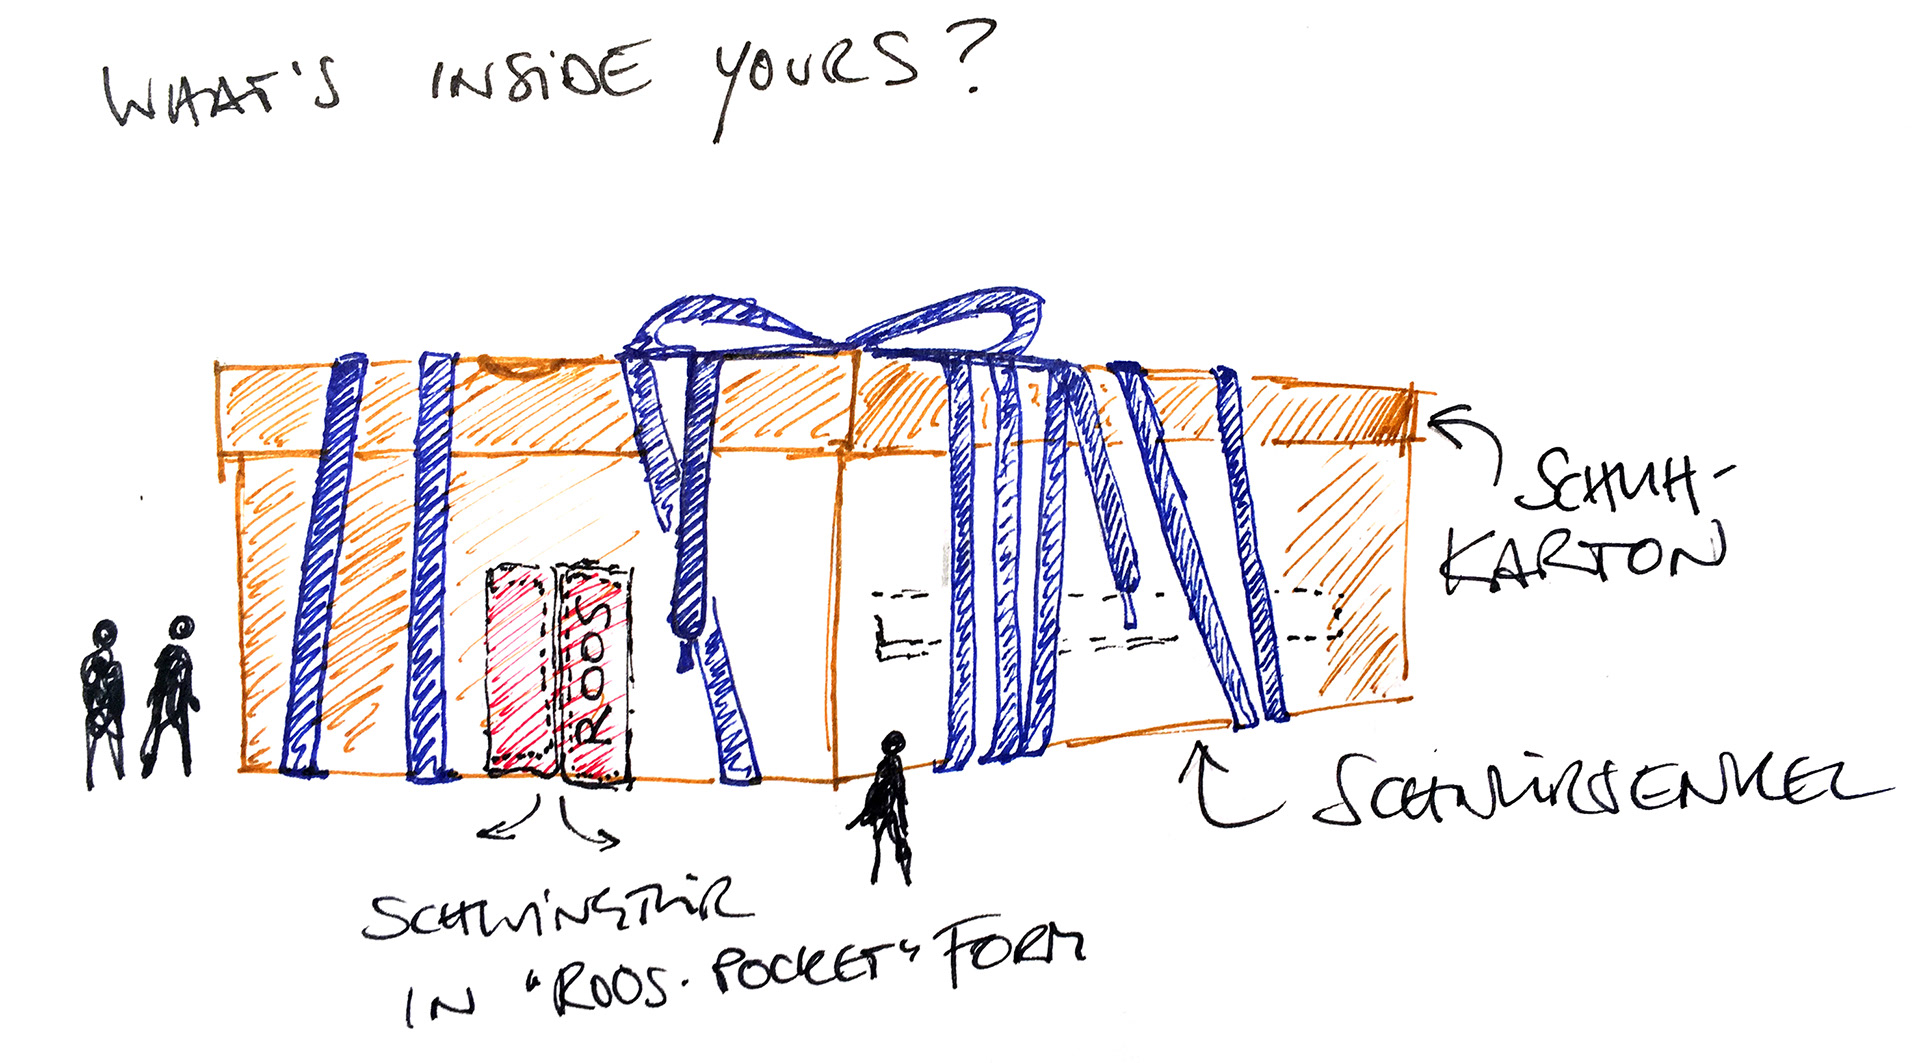 WHAT'S INSIDE YOURS?
SCHUH-
KARTON
ROOS
SCHNÜRSENKEL
SCHWINGTÜR
IN "ROOS-POCKET" FORM